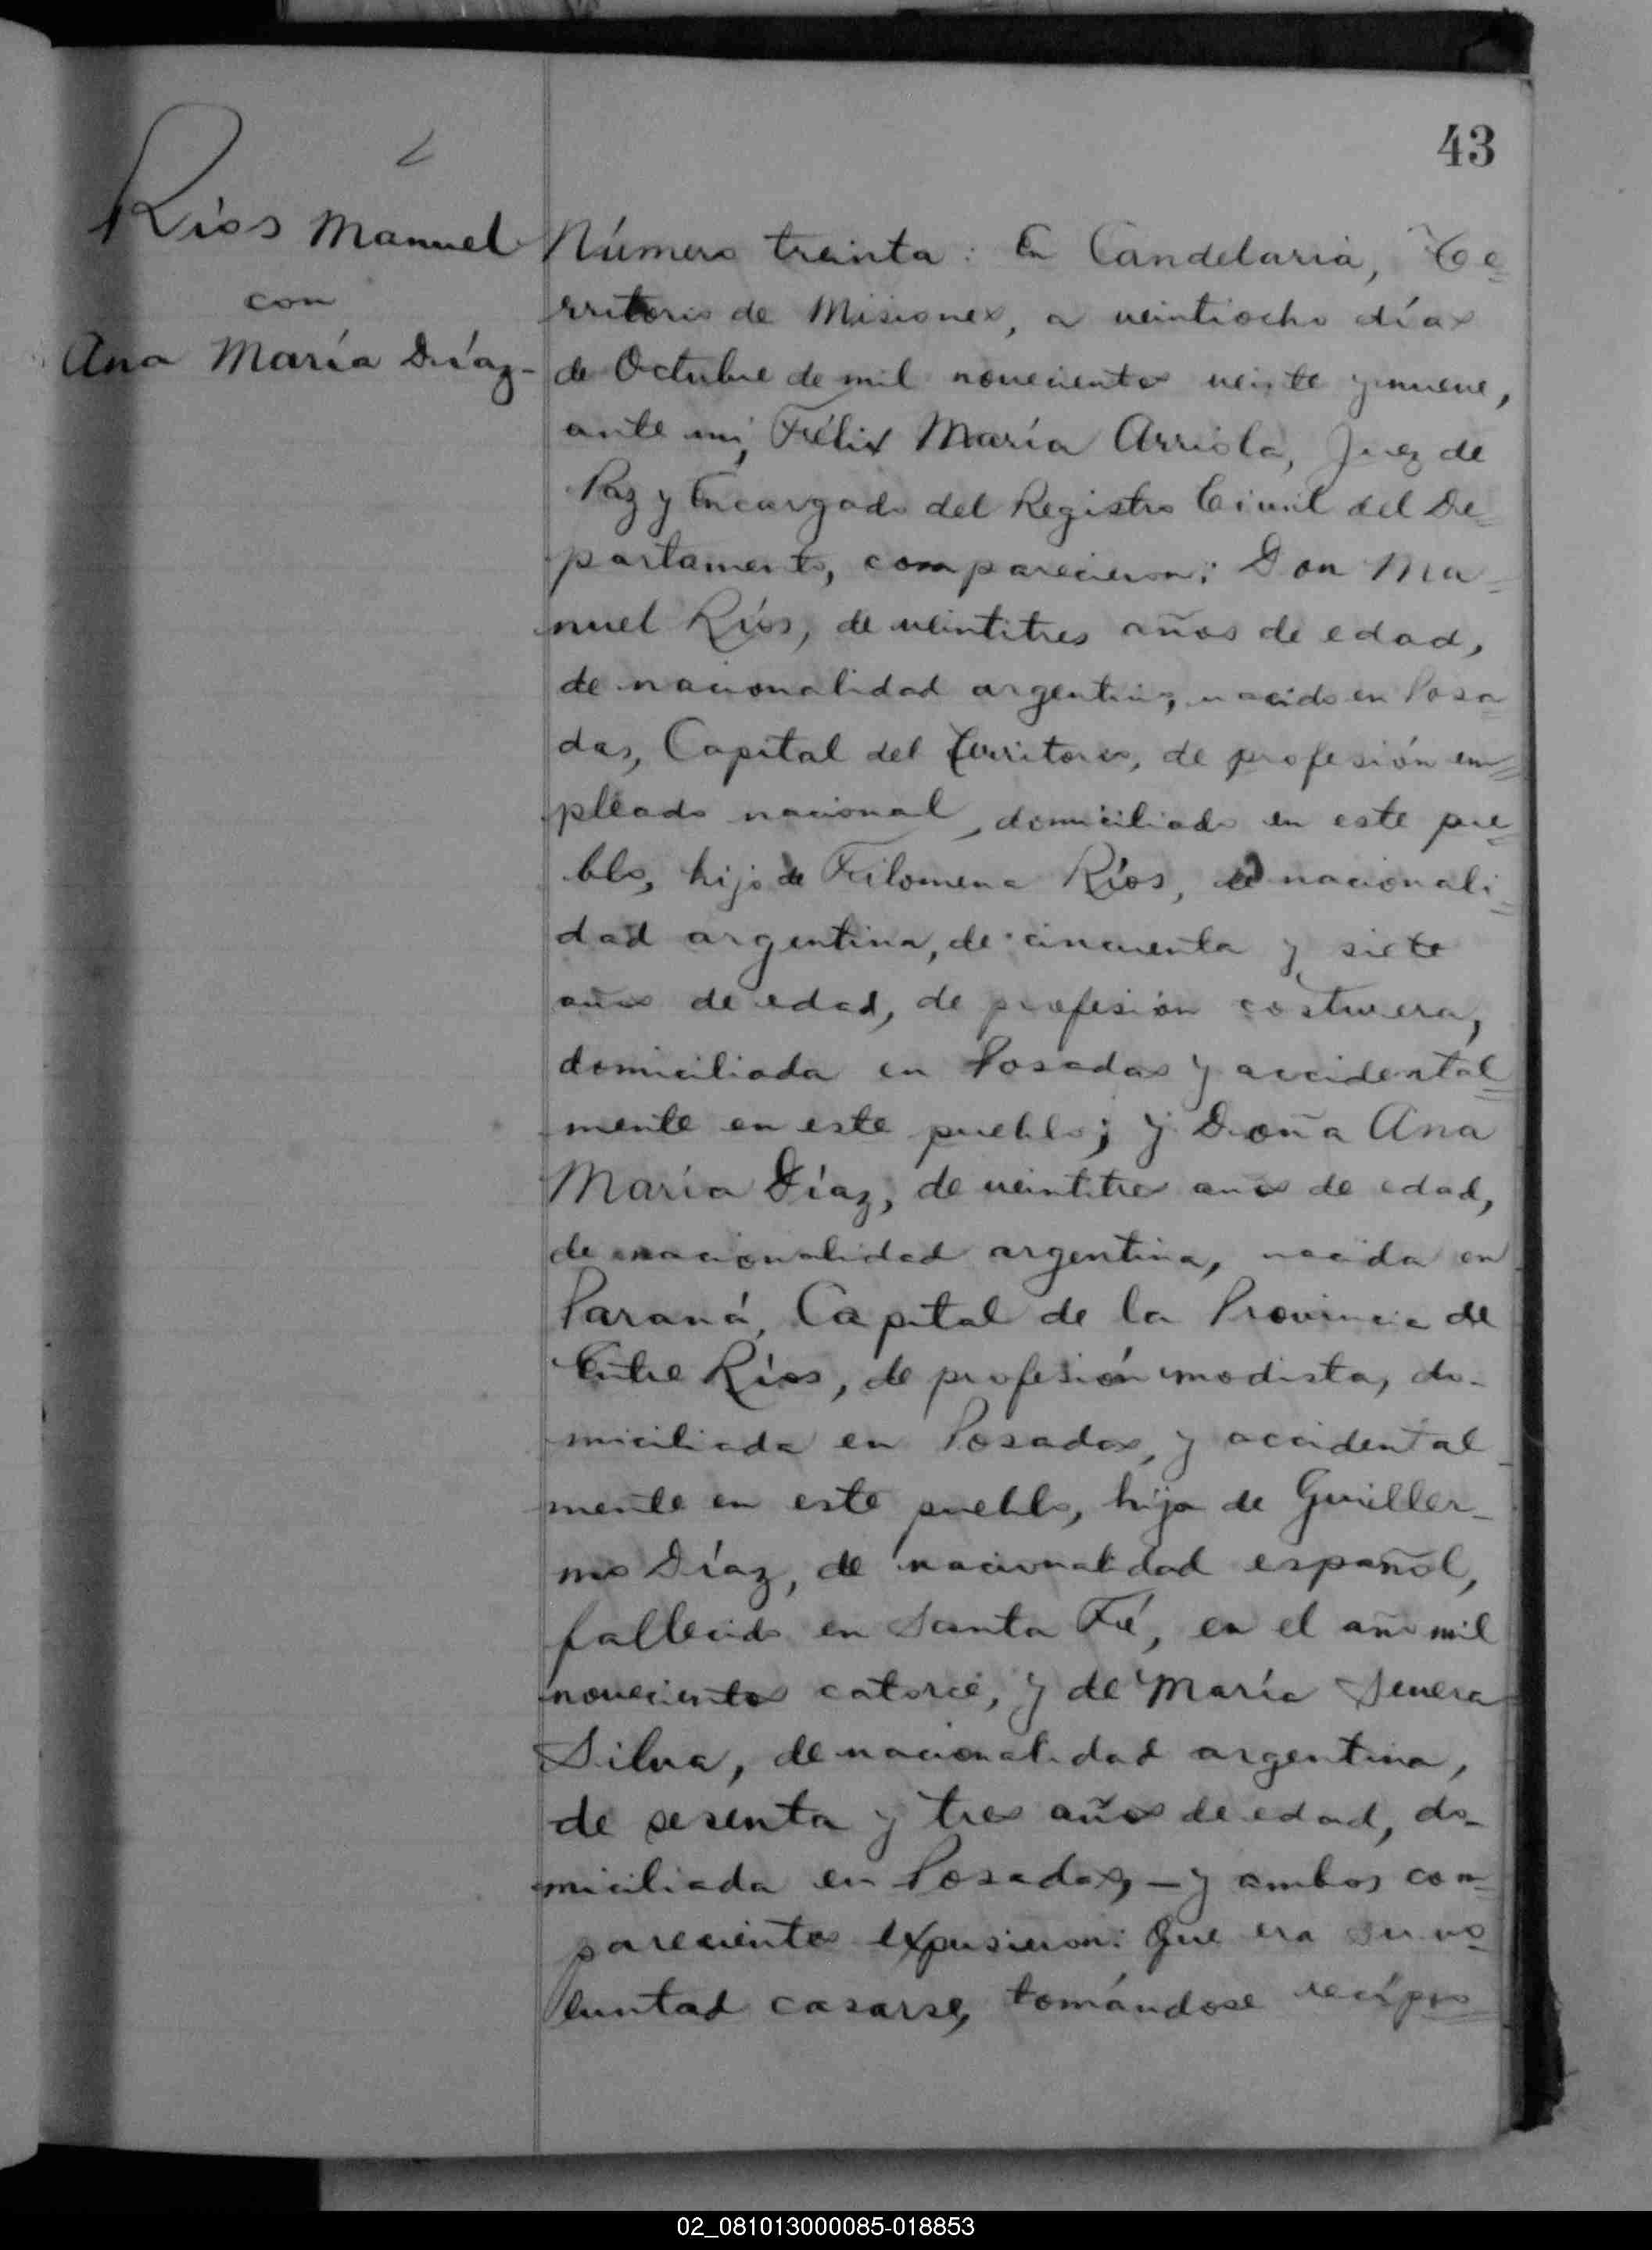 43
Ríos Manuel
con
Ana María Díaz-
Número treinta: En Candelaria, Te=
rritorio de Misiones, a veintiocho días
de Octubre de mil novecientos veinte y nueve,
ante mi, Félix María Arriola, Juez de
Paz y Encargado del Registro Civil del De=
partamento, comparecieron: Don Ma=
nuel Ríos, de veintitres años de edad,
de nacionalidad argentino, nacido en Posa=
das, Capital del Territorio, de profesión em=
pleado nacional, domiciliado en este pue=
blo, hijo de Filomena Ríos, de nacionali=
dad argentina, de cincuenta y siete
años de edad, de profesión costurera,
domiciliada en Posadas y accidental=
mente en este pueblo; y Doña Ana
María Díaz, de veintitres años de edad,
de nacionalidad argentina, nacida en
Paraná, Capital de la Provincia de
Entre Ríos, de profesión modista, do-
miciliada en Posadas, y accidental-
mente en este pueblo, hija de Guiller-
mo Díaz, de nacionalidad español,
fallecido en Santa Fé, en el año mil
novecientos catorce, y de María
Silva, de nacionalidad argentina,
de sesenta y tres años de edad, do-
miciliada en Posadas, - y ambos com=
parecientes expusieron: Que era su vo=
luntad casarse, tomándose recípro=
02_081013000085-018853